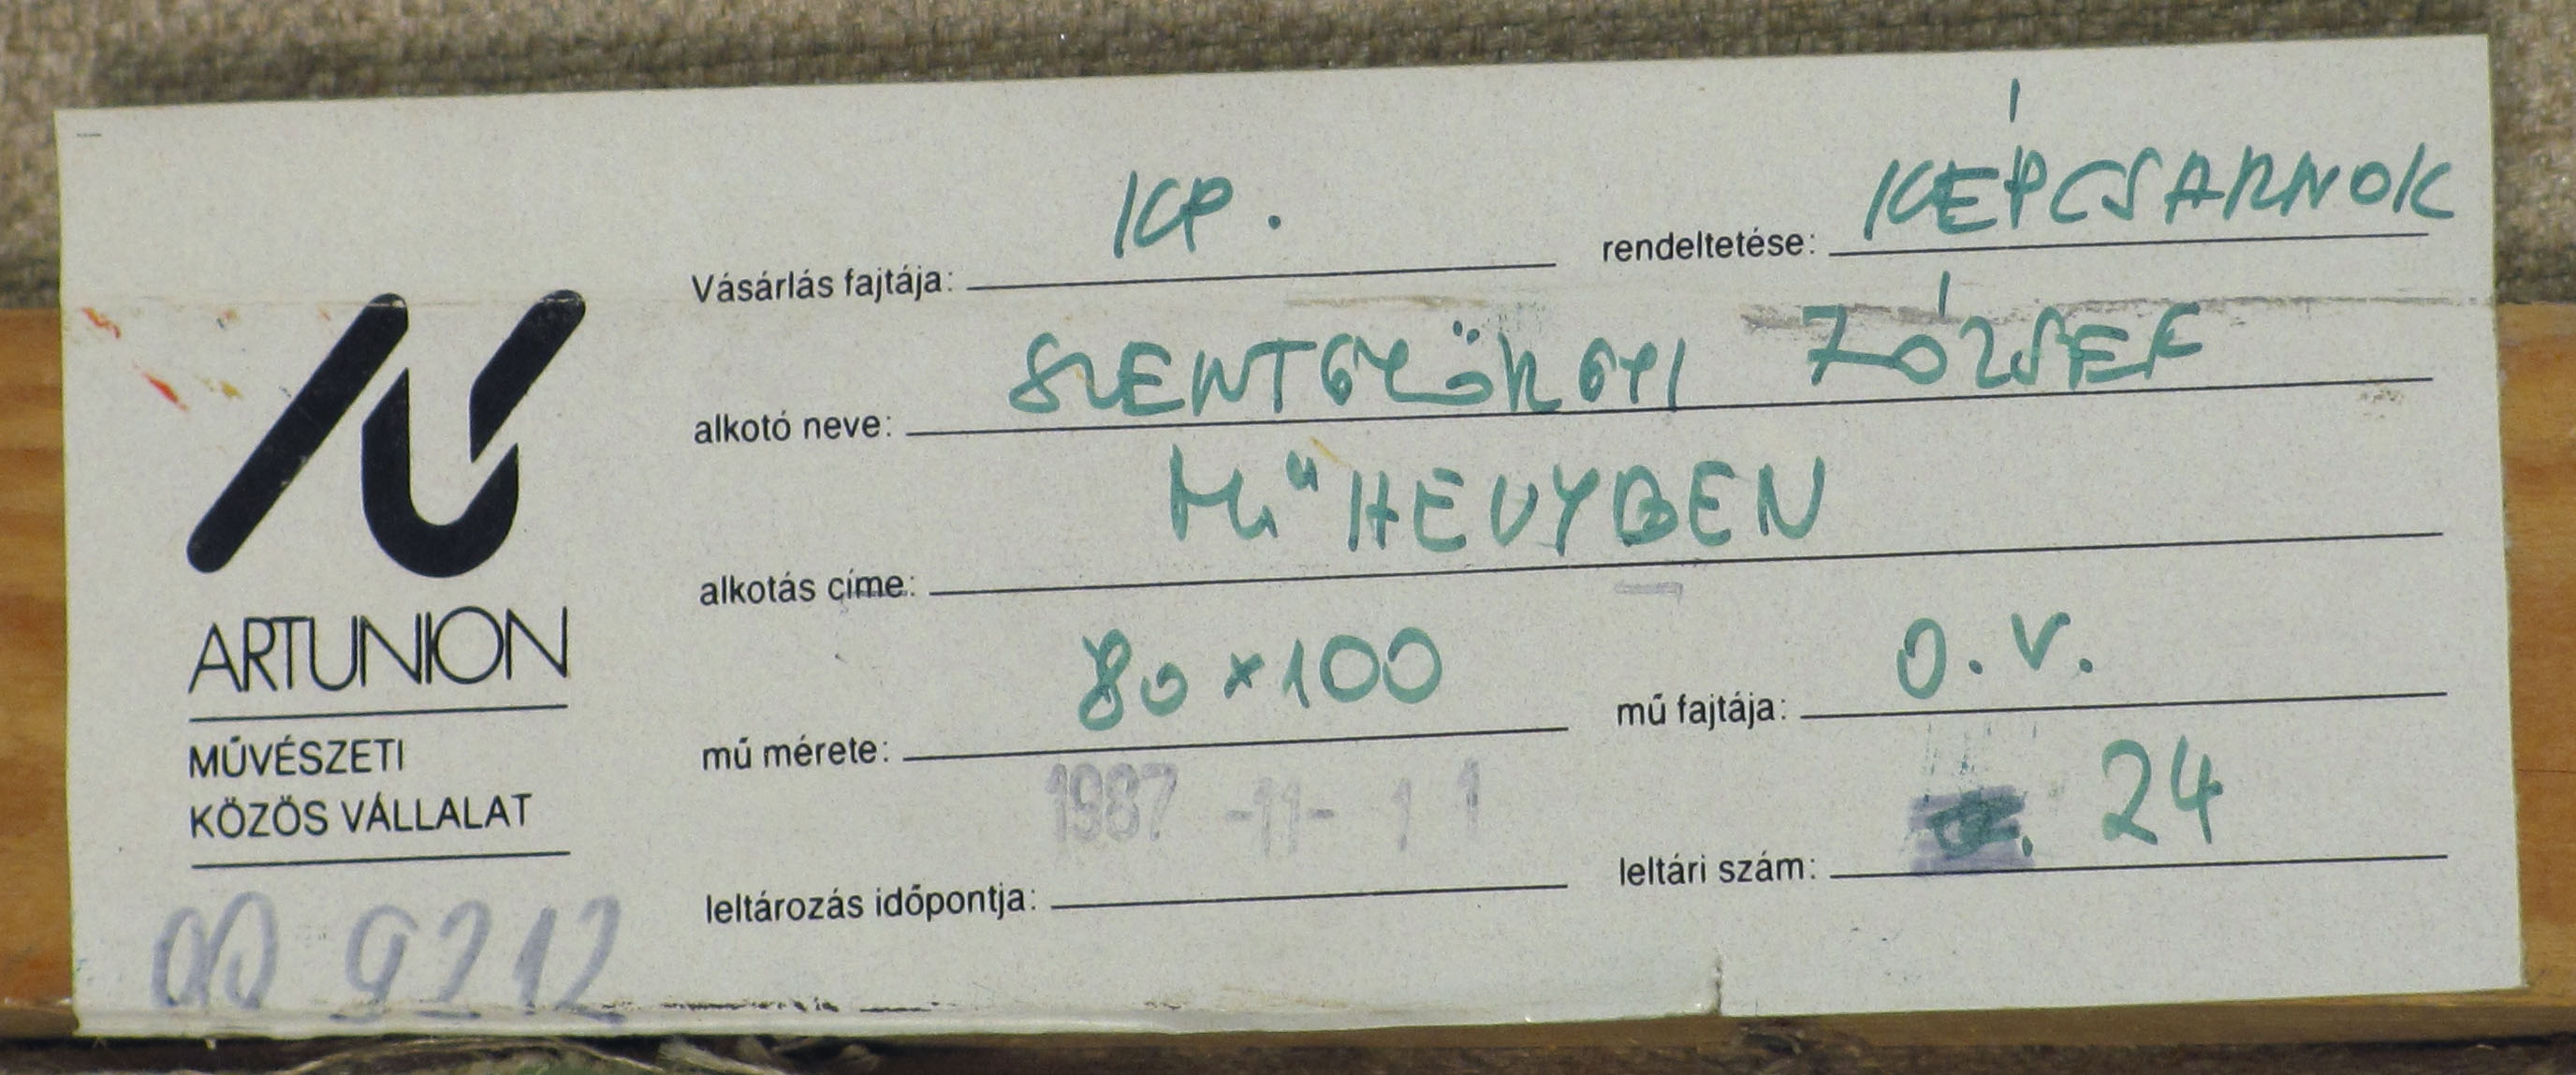 Vásárlás fajtája: KP. rendeltetése: KÉPCSARNOK
alkotó neve: SZENTGYÖRGYI JÓZSEF
alkotás címe: MŰHELYBEN
mű mérete: 80 × 100 mű fajtája: O.V.
1987 -11- 11
leltározás időpontja: leltári szám: 24
ARTUNION
MŰVÉSZETI
KÖZÖS VÁLLALAT
00 9212